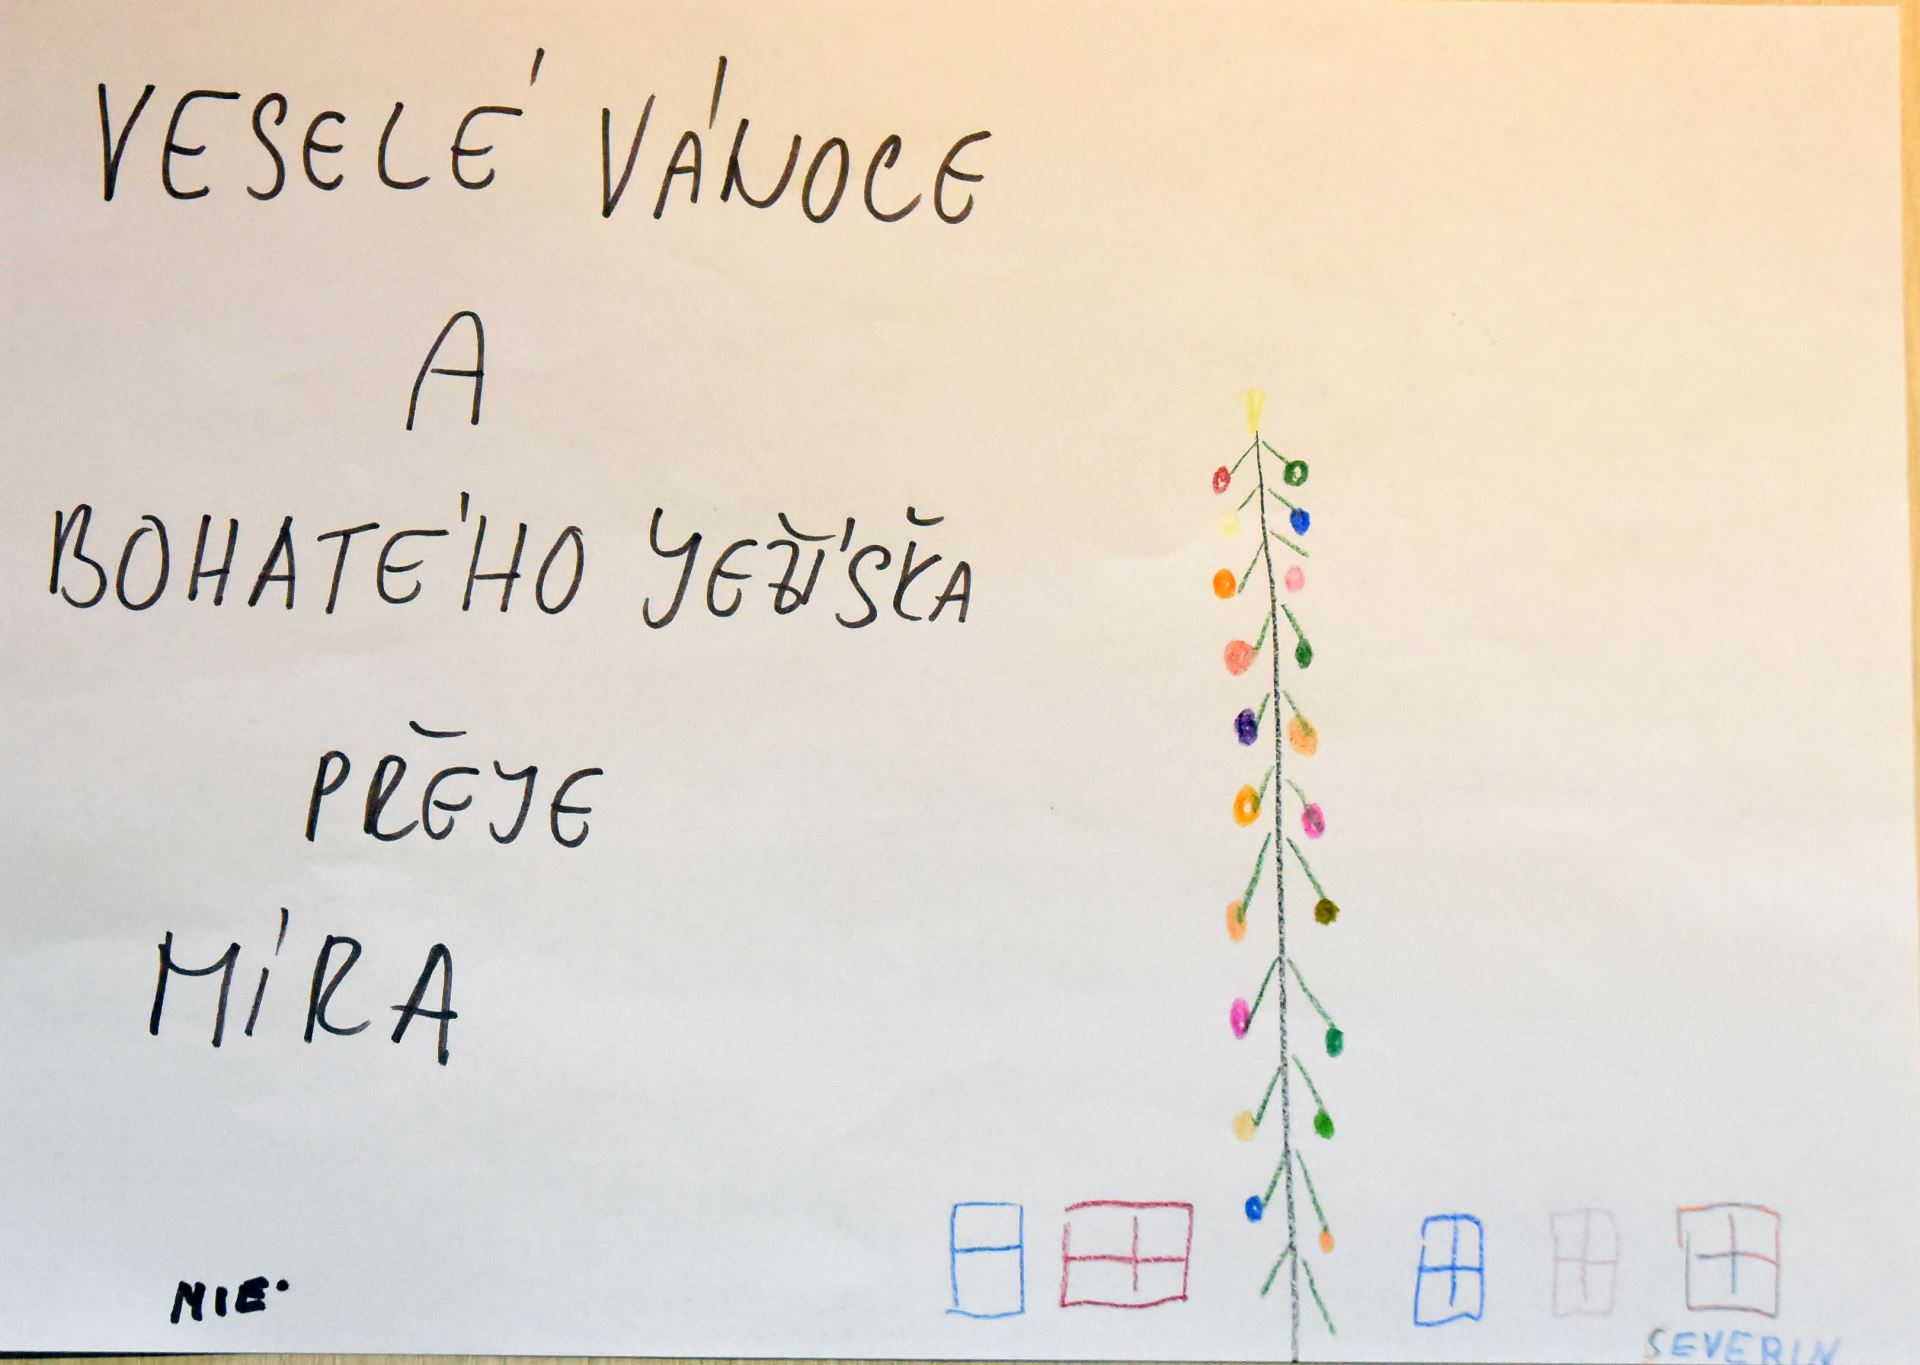 VESELÉ VÁNOCE
A
BOHATÉHO JEŽÍŠKA
PŘEJE
MÍRA
NIE.
SEVERIN